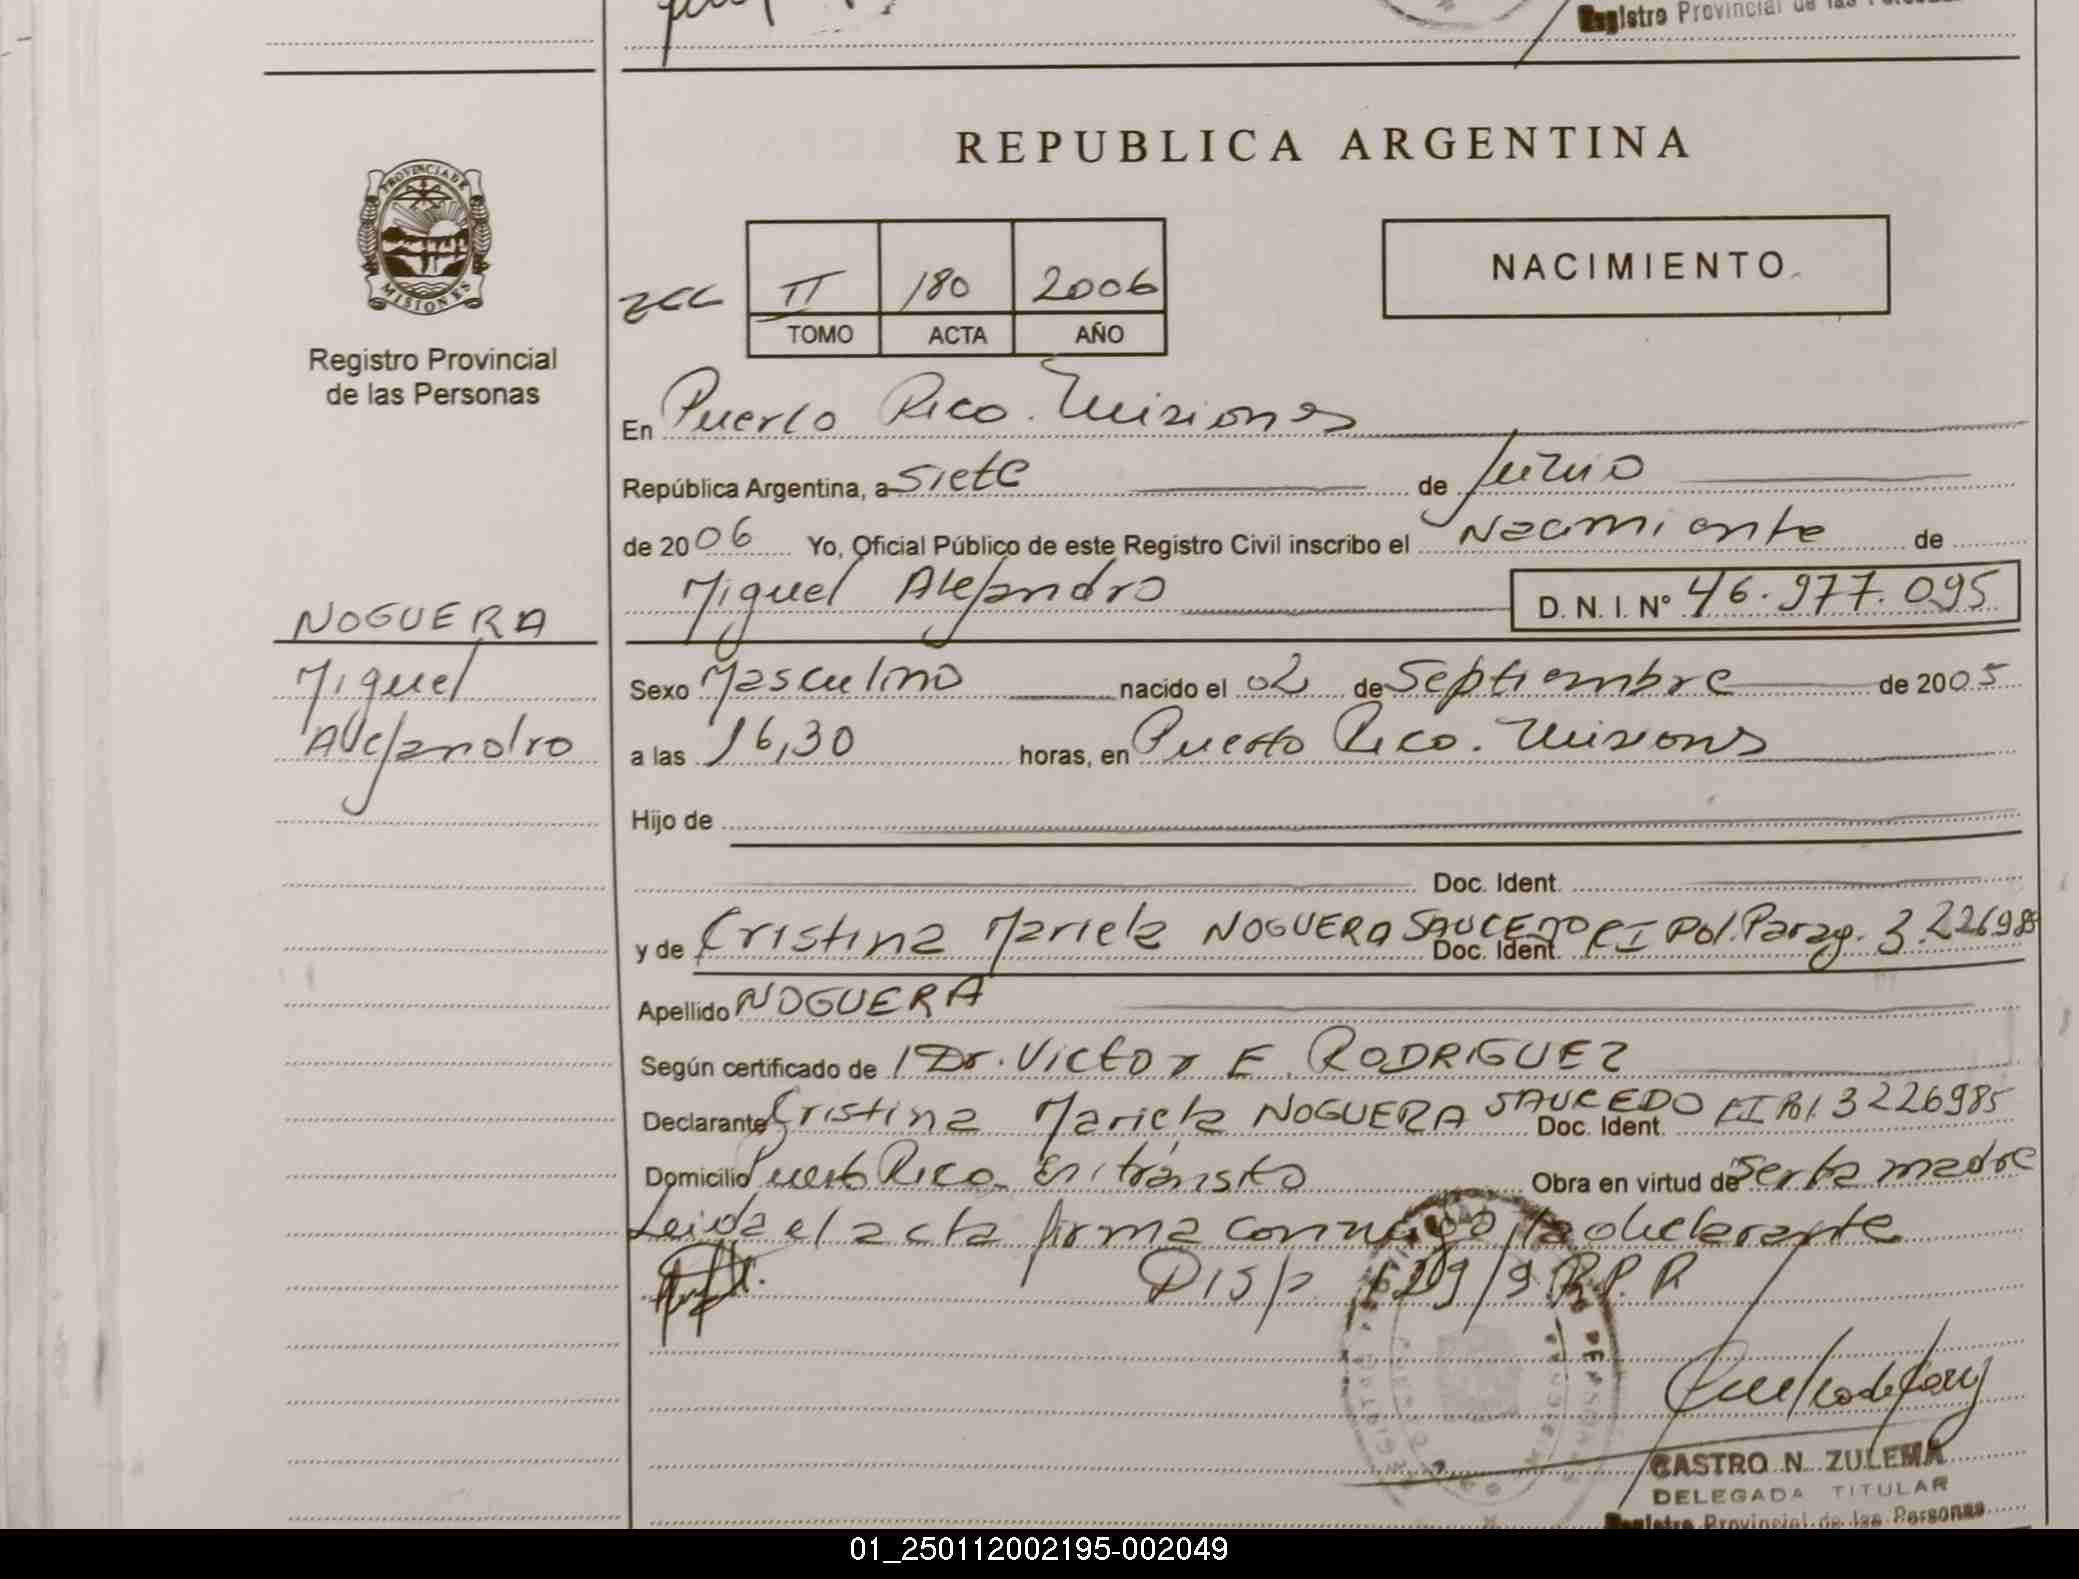 Registro Provincial de las Personas
REPUBLICA ARGENTINA
PROVINCIA DE
MISIONES
Registro Provincial
de las Personas
II 180 2006
TOMO ACTA AÑO
NACIMIENTO
En Puerto Rico. Misiones
República Argentina, a Siete de Junio
de 2006 Yo, Oficial Público de este Registro Civil inscribo el Nacimiento de
Miguel Alejandro D. N. I. Nº 46.977.095
NOGUERA
Miguel
Alejandro
Sexo Masculino nacido el 02 de Septiembre de 2005
a las 16,30 horas, en Puerto Rico. Misiones
Hijo de
Doc. Ident.
y de Cristina Mariela NOGUERA SAUCEDO Doc. Ident. CI Pol. Parag. 3.226985
Apellido NOGUERA
Según certificado de Dr. Victor E. RODRIGUEZ
Declarante Cristina Mariela NOGUERA SAUCEDO Doc. Ident. CI Pol 3226985
Domicilio Puerto Rico. En tránsito Obra en virtud de ser la madre
Leida el acta firma conmigo la declarante
Disp. 129/9 R.P.P.
CASTRO N. ZULEMA
DELEGADA TITULAR
Registro Provincial de las Personas
01_250112002195-002049